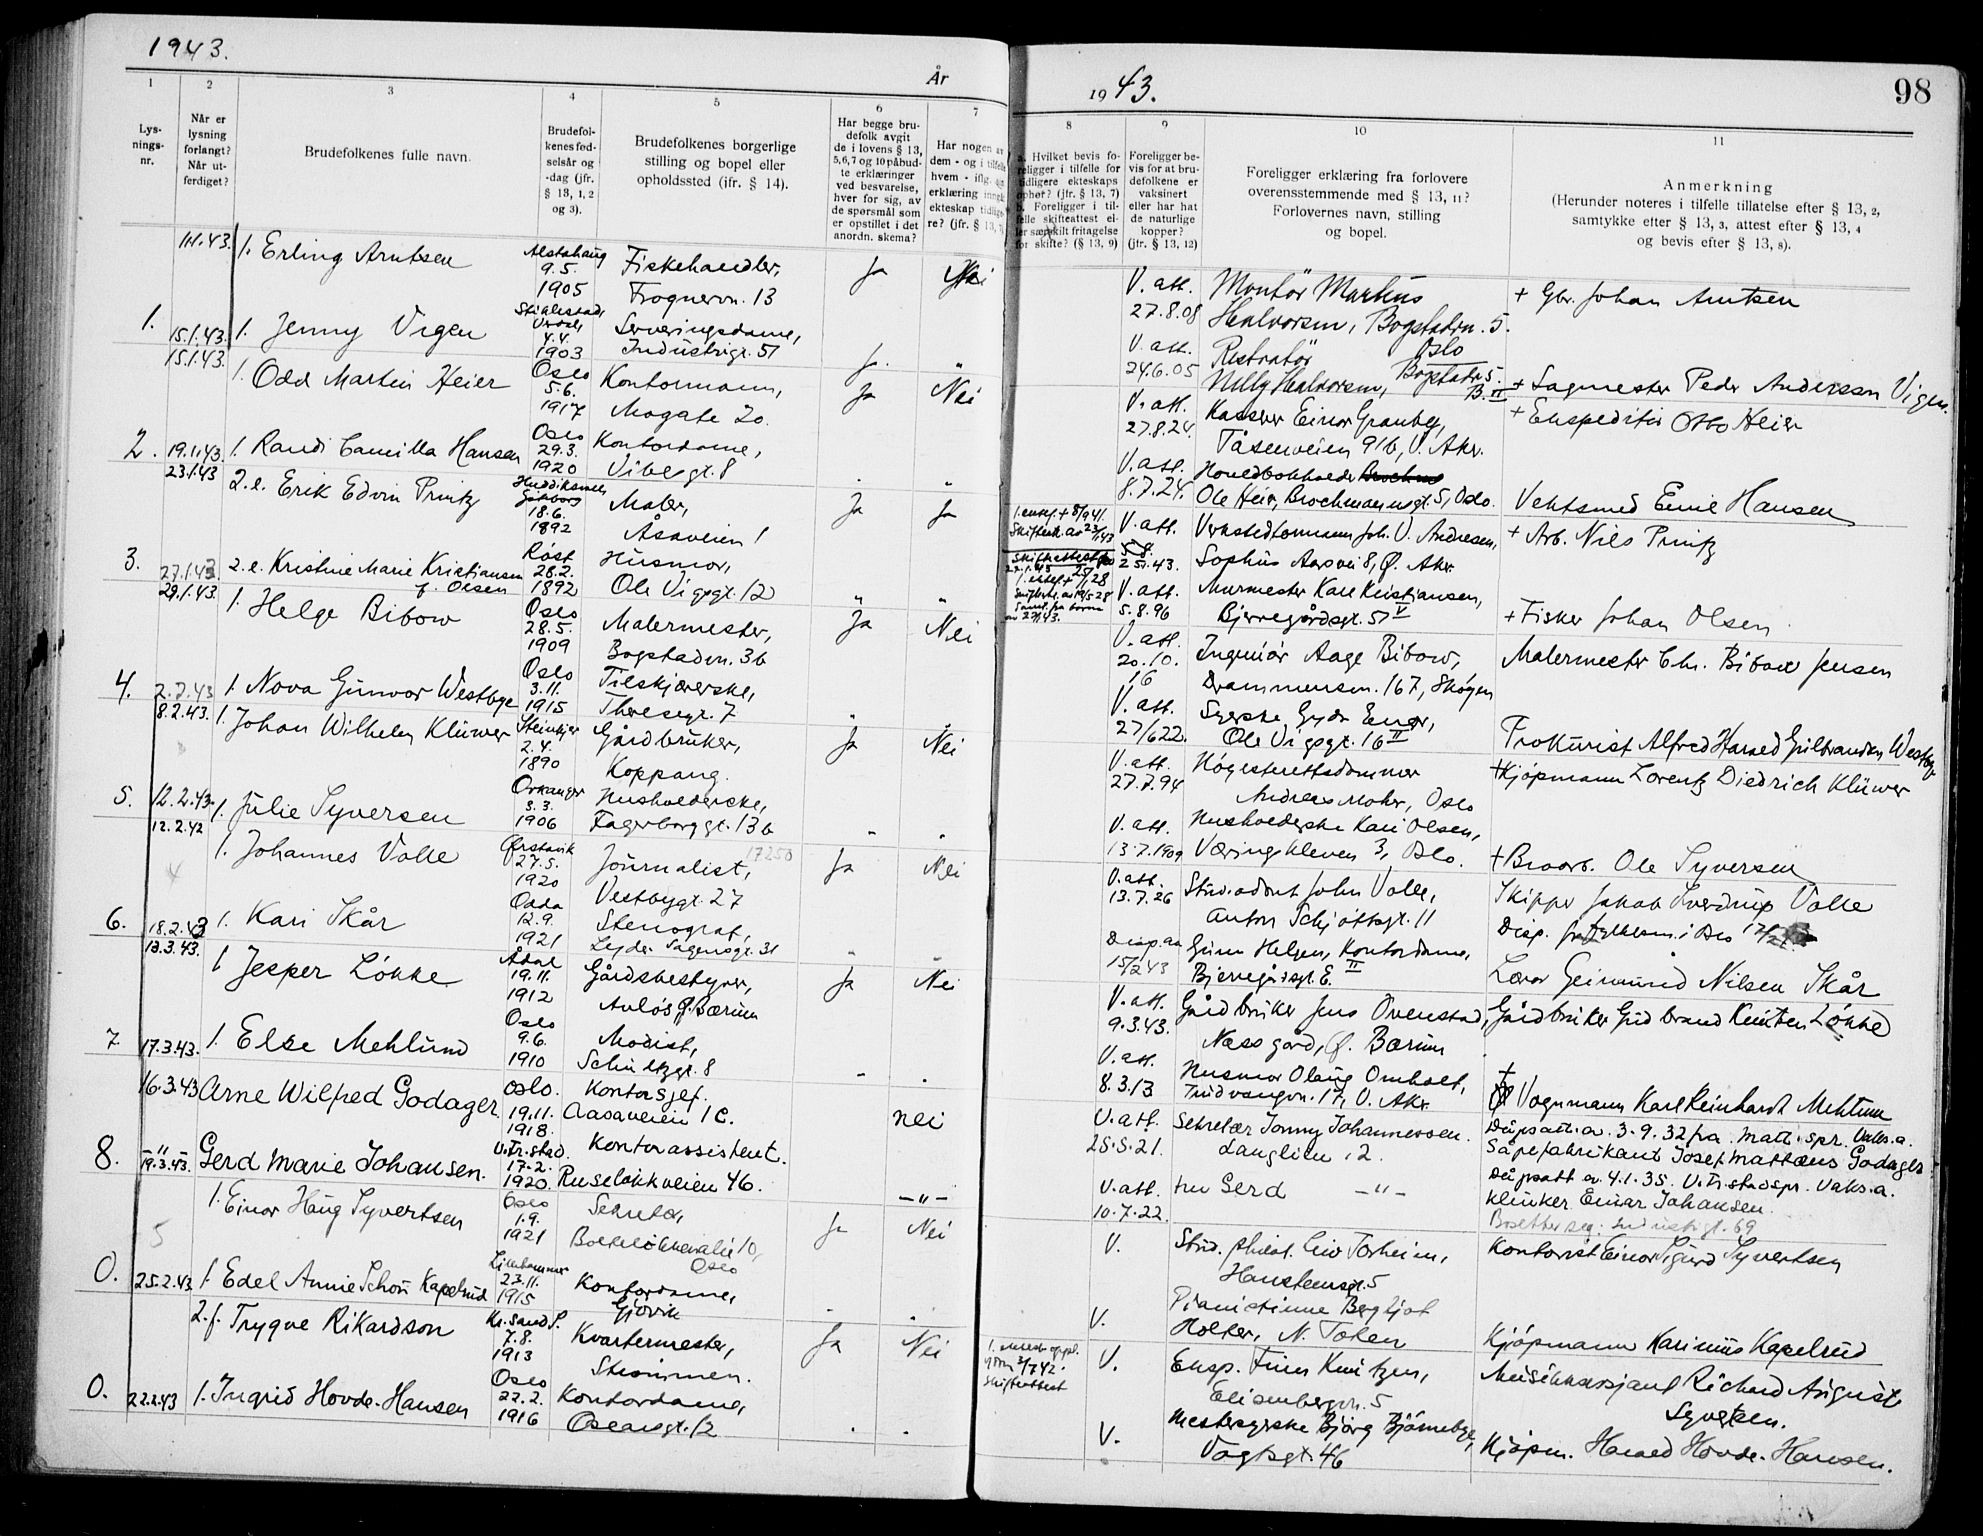 1943.
År
1943.
98
1
2
3
4
5
6
7
8
9
10
11
Lys-
nings-
nr.
Når er
lysning
forlangt?
Når ut-
ferdiget?
Brudefolkenes fulle navn.
Brudefol-
kenes fød-
selsår og
-dag (jfr.
§ 13, 1, 2
og 3).
Brudefolkenes borgerlige
stilling og bopel eller
opholdssted (jfr. § 14).
Har begge bru-
defolk avgit
de i lovens § 13,
5,6,7 og 10 påbud-
te erklæringer
ved besvarelse,
hver for sig, av
de spørsmål som
er opstillet i det
anordn. skema?
Har nogen av
dem - og i tilfelle
hvem - iflg.
erklæring inngått
ekteskap tidlige-
re? (jfr. § 13,
a. Hvilket bevis fo-
religger i tilfelle for
tidligere ekteskaps
ophør? (jfr. § 13, 7)
b. Foreligger i til-
felle skifteattest el-
ler særskilt fritagelse
for skifte? (§ 13, 9)
Foreligger be-
vis for at bru-
defolkene er
vaksinert
eller har hat
de naturlige
kopper?
(jfr. § 13, 12)
Foreligger erklæring fra forlovere
overensstemmende med § 13, 11?
Forlovernes navn, stilling
og bopel.
Anmerkning
(Herunder noteres i tilfelle tillatelse efter § 13, 2,
samtykke efter § 13, 3, attest efter § 13, 4
og bevis efter § 13, 8).
1.
11.1.43.
1. Erling Arntsen
Alstahaug
9.5.
1905
Fiskehandler,
Frognervn. 13
Ja
Nei
V. att.
27.8.08
Montör Martius
Halvorsen, Bogstadvn. 5.
Oslo
+ Gbr. Johan Arntsen
15.1.43.
1. Jenny Vigen
Stiklestad,
Verdal,
4.4.
1903
Serveringsdame,
Industrigt. 51
V. att.
24.6.05
Nelly Halvorsen, Bogstadv. 5.
+ Sagmester Peder Andersen Vigen.
2.
15.1.43.
1. Odd Martin Heier
Oslo
5.6.
1917
Kontormann,
Mogate 20.
Ja
Nei
V. att.
27.8.24.
Kasserer Einar Granberg,
Tåsenveien 91b, V. Aker.
+ Ekspeditör Otto Heier
19.1.43.
1. Randi Camilla Hansen
Oslo
29.3.
1920
Kontordame,
Vibesgt. 8
V. att.
8.7.24.
Hovedbokholder
Ole Heier, Brochmannsgt. 5, Oslo.
Vektsmed Emil Hansen
3.
23.1.43
2. e. Erik Edvin Printz
18.6.
1892
Maler,
Åsaveien 1
Ja
Ja
V. att.
Verkstedformann Joh. V. Andresen,
Sophus Aarsvei 8, Ø. Aker.
+ Arb. Nils Printz
27.1.43
2. e. Kristine Marie Kristiansen
f. Olsen
Röst
28.2.
1892
Husmor,
Ole Vigsgt. 12
V. att.
5.8.96
Murmester Karl Kristjansen,
Bjerregårdsgt. 51 V
+ Fisker Johan Olsen
4.
29.1.43.
1. Helge Bibow
Oslo
28.5.
1909
Malermester,
Bogstadvn. 36
Ja
Nei
V. att.
20.10.
16
Ingeniör Aage Bibow,
Drammensvn. 167, Skøyen
Malermester Chr. Bibow Jensen
2.2.43
1. Nova Gunvor Westbye
Oslo
3.11.
1915
Tilskjærerske,
Theresegt. 7
V. att.
27/6 22.
Syerske Gyda Enger,
Ole Vigsgt. 16 II
Prokurist Alfred Harald Gulbrandsen Westbye
5.
8.2.43.
1. Johan Wilhelm Klüwer
Steinkjer
2.4.
1890
Gårdbruker,
Koppang.
Ja
Nei
V. att.
27.7.94
Högesterettsdommer
Andreas Mohr, Oslo
+ Kjöpmann Lorentz Diedrich Klüwer
12.2.43.
1. Julie Syversen
Orkanger
3.3.
1906
Husholderske,
Fagerborggt. 13b
V. att.
13.7.1909
Husholderske Kari Olsen,
Væringskleven 3, Oslo.
+ Broarb. Ole Syversen
6.
12.2.42
1. Johannes Valle
27.5.
1920
Journalist,
17250
Vestbygt. 27
Ja
Nei
V. att.
13.7.26
Stud. John Valle,
Anton Schjöttsgt. 11
Skipper Jakob Sverdrup Valle
18.2.43
1. Kari Skår
Odda
12.9.
1921
Stenograf,
Lyder Sagensgt. 31
Disp. av
15/2 43
Gunn Helgen, Kontordame,
Bjerregårdsgt. II
Lærer Geirmund Nilsen Skår
7
13.3.43.
1 Jesper Lökke
Ådal
19.11.
1912
Gårdsbestyrer,
Aulös, Ø. Bærum
Ja
Nei
V. att.
9.3.43.
Gårdbruker Jens Ovenstad,
Næss gård, Ø. Bærum
Gårdbruker Gudbrand Knutsen Lökke
17.3.43.
1. Else Mehlund
Oslo
9.6.
1910
Modist,
Schultzgt. 8
V. att.
8.3.13
Husmor Olaug Omholt,
Tuidvangvn. 17, V. Aker.
Vognmann Karl Reinhardt Mehlum
8.
16.3.43
Arne Wilfred Godager
Oslo.
19.11.
1918.
Kontorsjef.
Aasaveien 1C.
nei
V. att.
25.5.21.
Sekretær Jonny Johannessen.
Langlien 12.
Dåpsatt. a. 3.9.32 fra Matt. spr. Vaks. a.
Såpefabrikant Josef Mattæus Godager
-"-
19.3.43.
Gerd Marie Johansen.
V. Fr. stad.
17.2.
1920.
Kontorassistent.
Ruseløkkveien 46.
-"-
V. att.
10.7.22.
fru Gerd -"-
Dåpsatt a. 4.1.35. V. Fr. stad spr. Vaks. a.
Klinker Einar Johansen.
Bosetter seg: Industrigt. 69
0.
1. Einar Haug Syvertsen
Oslo
1.9.
1921
Sekretær,
Bolteløkkealle 10,
Oslo
Ja
Nei
V.
Stud. philol. Liv Torheim,
Hansteensgt. 5
Kontorist Einar Sigurd Syvertsen
25.2.43.
1. Edel Annie Schou Kapelrud
Lillehammer
23.11.
1915
Kontordame,
Gjøvik
V.
Pianistinne Bergljot
Holter, N. Toten
Kjöpmann Karinius Kapelrud
0.
2. f. Trygve Rikardson
Kr. sand S.
7.8.
1913
Kvartermester,
Strömmen.
Ja
Nei
Skifteattest
V.
Eksp. Finn Knutzen,
Elisenbergvn. 5
Musikksersjant Richard August
Syvertsen.
22.2.43
1. Ingrid Hovde-Hansen
Oslo
22.2.
1916
Kontordame,
Oscarsgt. 12
V.
Mestersyerske Björg Björnebye,
Vogtsgt. 46
Kjöpm. Harald Hovde-Hansen.